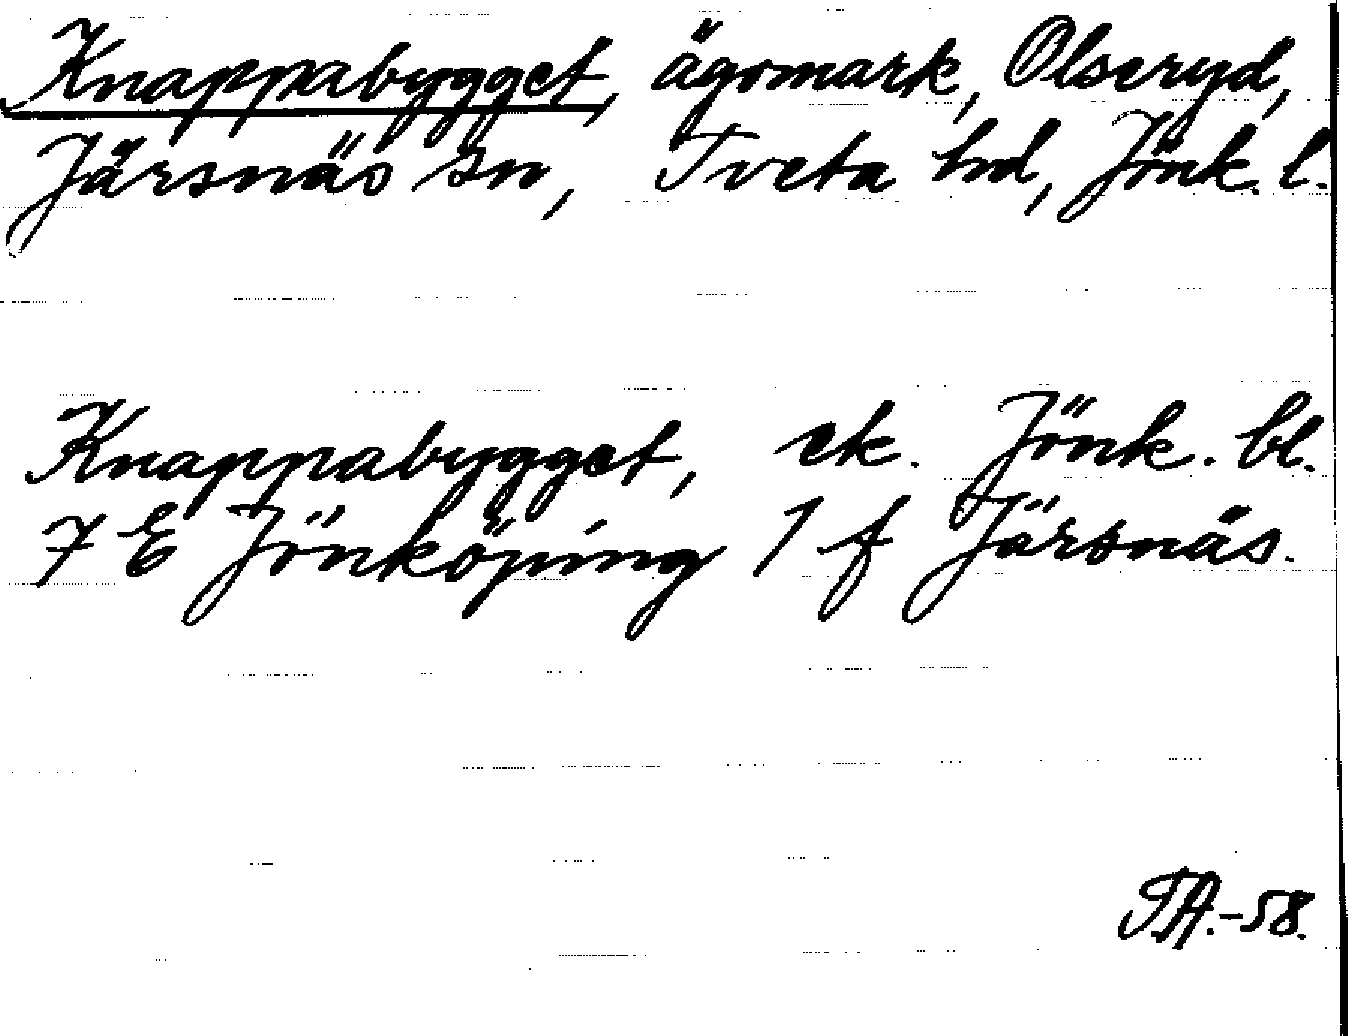 Knappabygget, ägomark, Olseryd,
Järsnäs sn, Tveta hd, Jönk. l.
Knappabygget, ek. Jönk. bl.
7 E Jönköping 1 f Järsnäs.
T.A.-58.